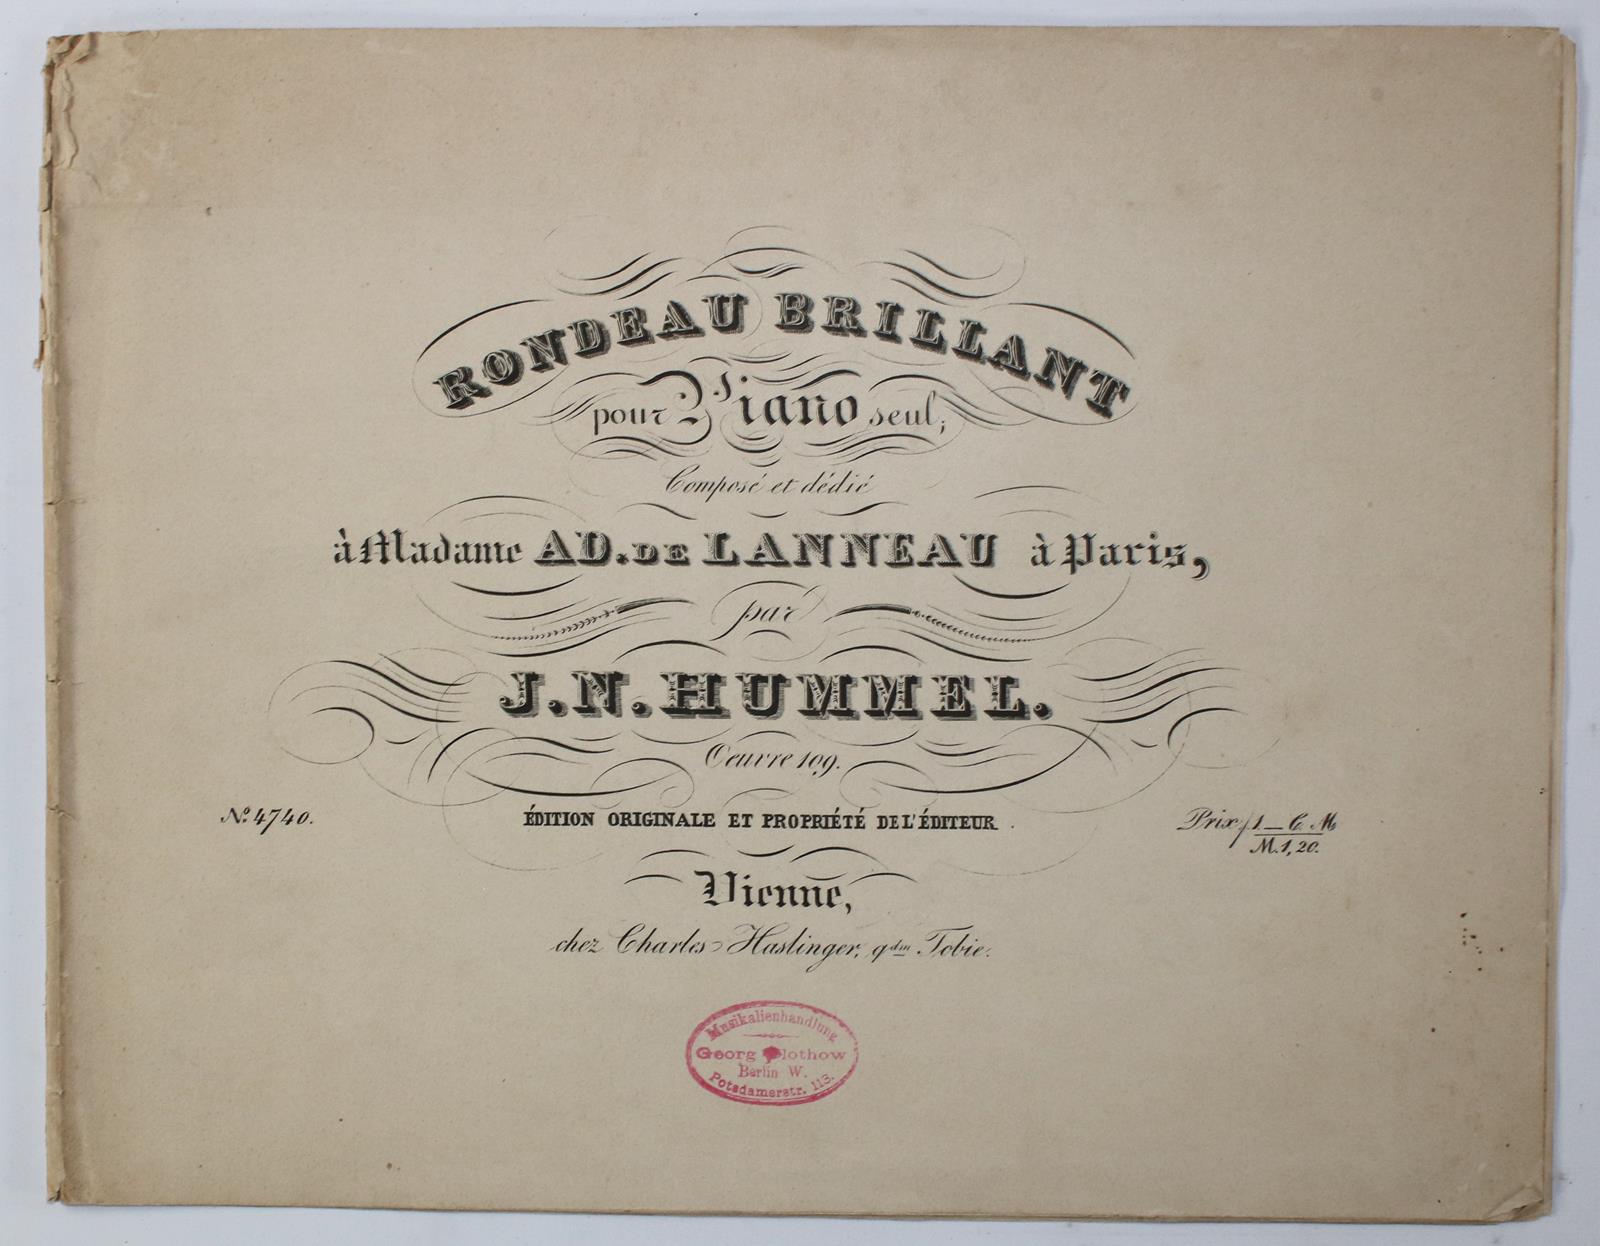 RONDEAU BRILLANT
pour Piano seul,
Composé et dédié
à Madame AD. DE LANNEAU à Paris,
par
J. N. HUMMEL.
Oeuvre 109.
No. 4740.
ÉDITION ORIGINALE ET PROPRIÉTÉ DE L'ÉDITEUR.
Prix f 1 _ C. M
M. 1, 20.
Vienne,
chez Charles Haslinger, qdm Tobie.
Musikalienhandlung
Georg Plothow
Berlin W.
Potsdamerstr. 113.